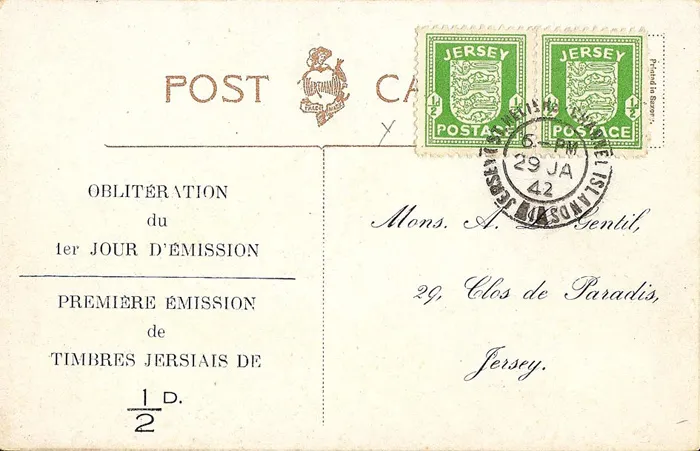 POST CA
JERSEY
½
½
POSTAGE
JERSEY
½
½
POSTAGE
Printed in Saxony.
JERSEY CHANNEL ISLANDS
6 - PM
29 JA
42
OBLITÉRATION
du
1er JOUR D'ÉMISSION
PREMIÈRE ÉMISSION
de
TIMBRES JERSIAIS DE
1/2 D.
Mons. A. Gentil,
29, Clos de Paradis,
Jersey.